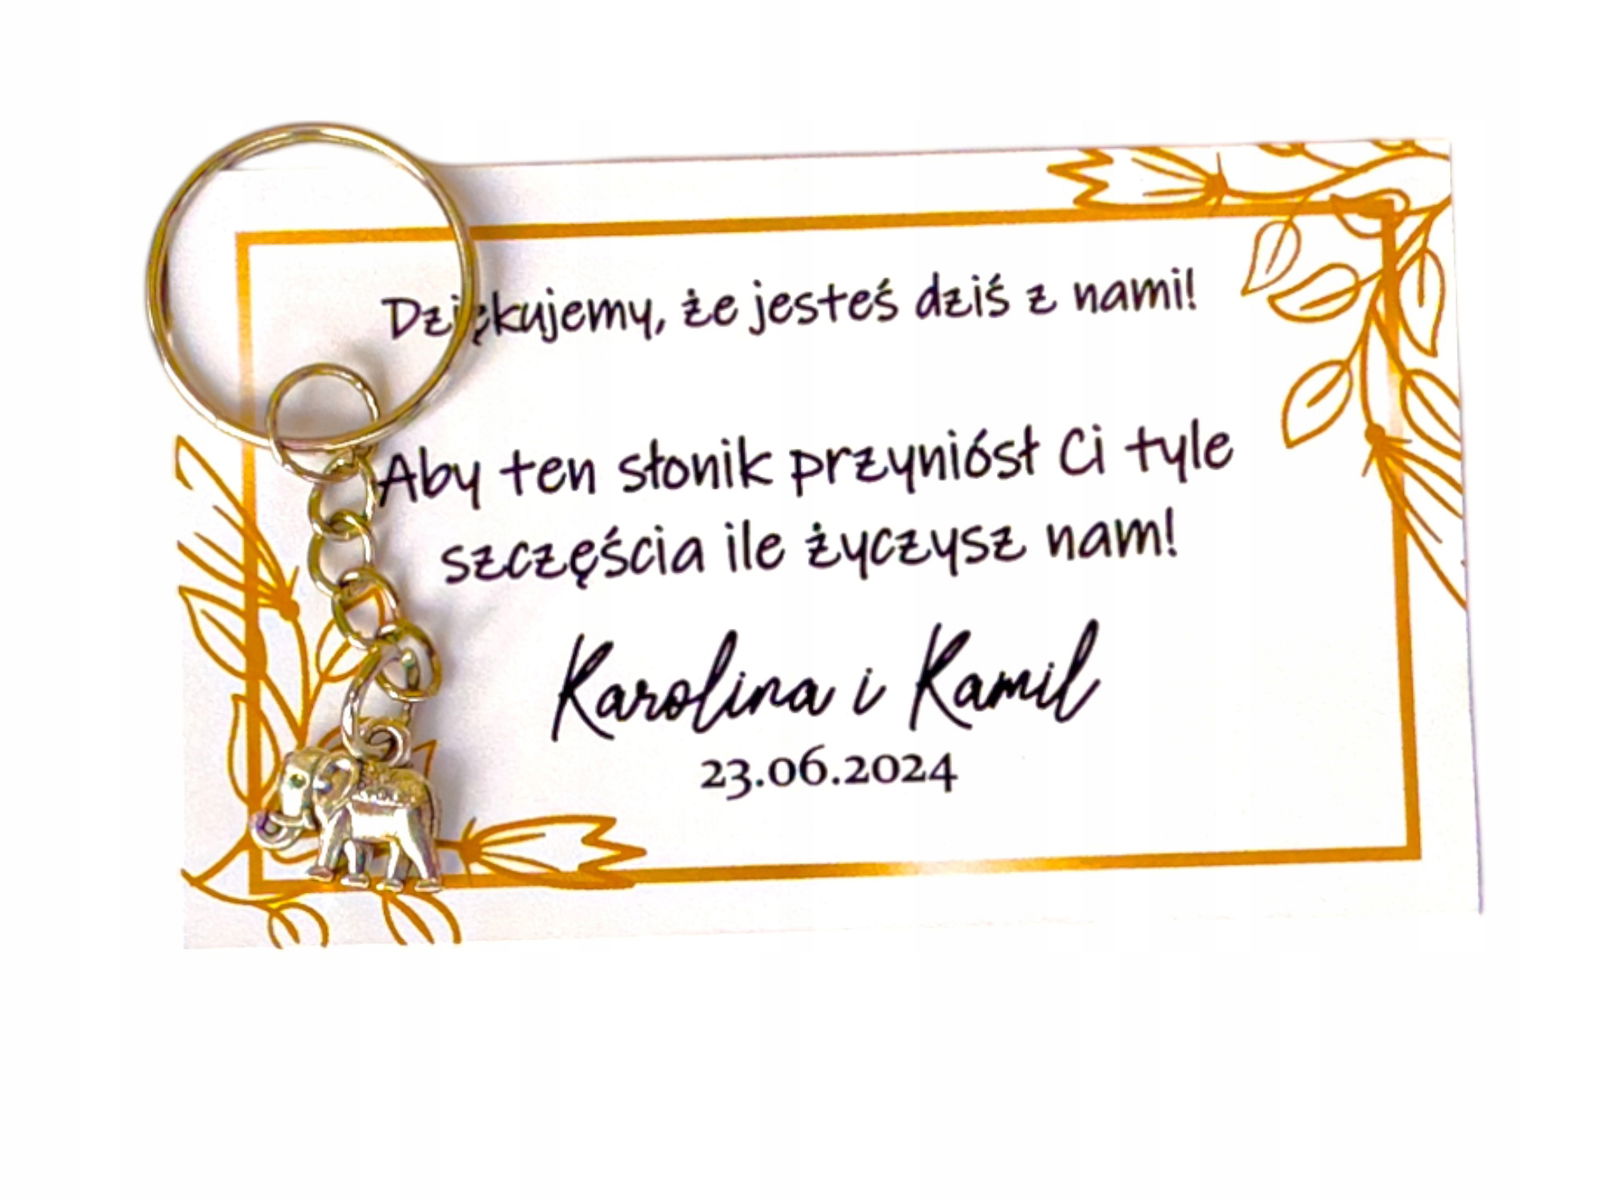 Dziękujemy, że jesteś dziś z nami!
Aby ten słonik przyniósł Ci tyle
szczęścia ile życzysz nam!
Karolina i Kamil
23.06.2024